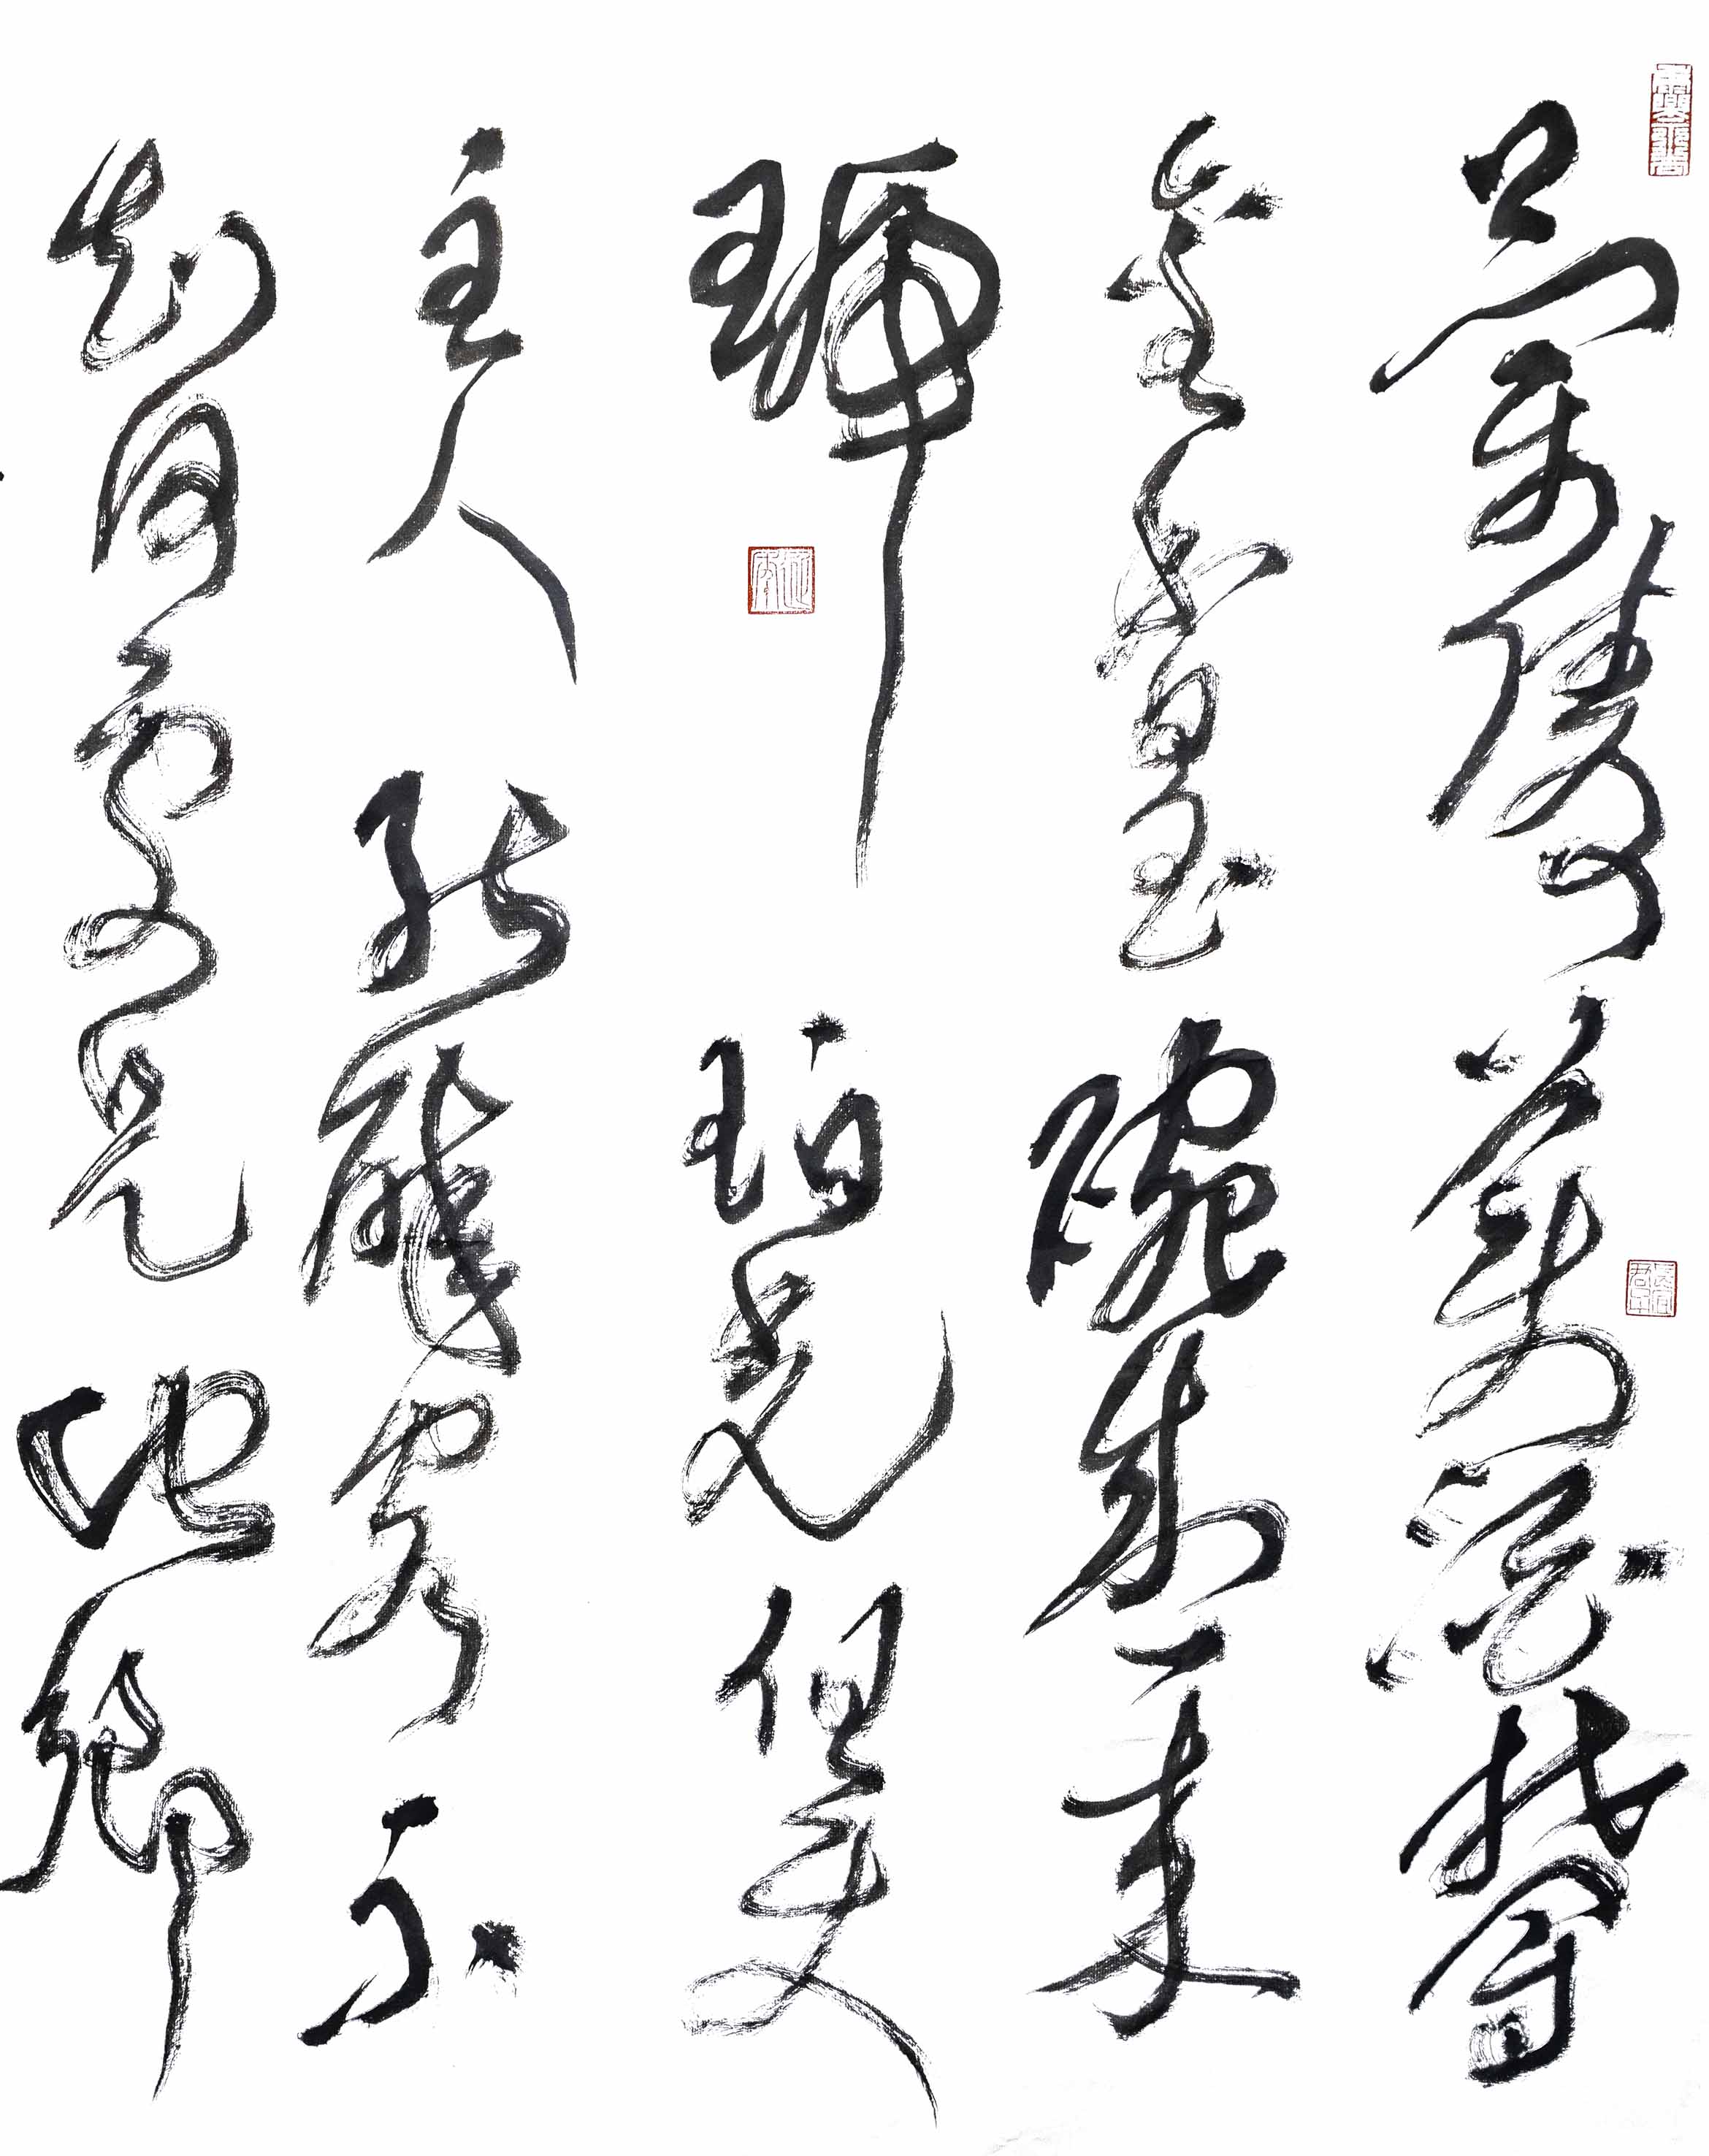 蘭陵美酒鬱
金香玉碗盛來
琥珀光但使
主人能醉客不
知何處是他鄉